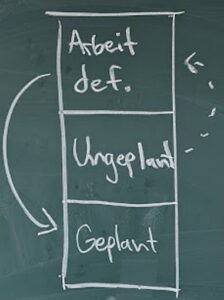 Arbeit
def.
Ungeplant
Geplant